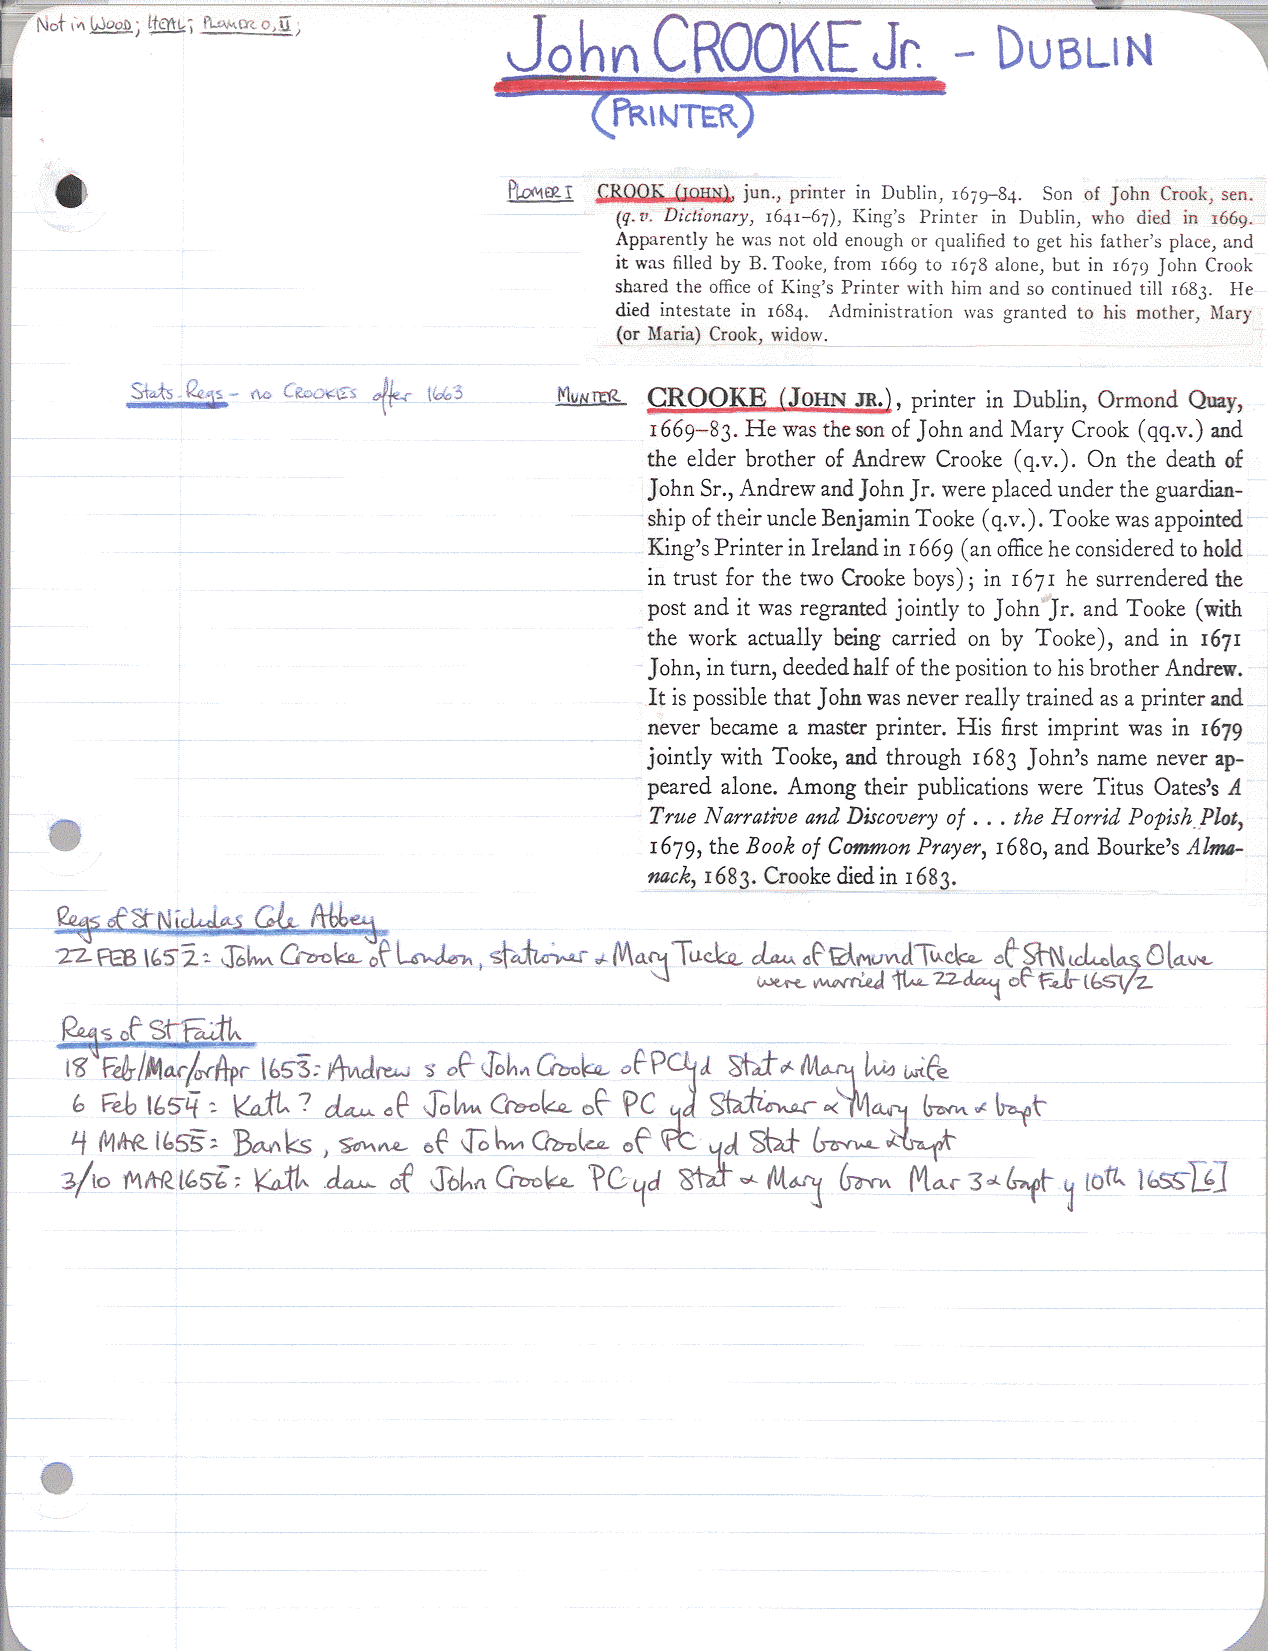 Not in WOOD; HEAL; PLOMER O, II;
John CROOKE Jr. - DUBLIN
(PRINTER)
PLOMER I
CROOK (JOHN), jun., printer in Dublin, 1679–84. Son of John Crook, sen.
(q.v. Dictionary, 1641–67), King's Printer in Dublin, who died in 1669.
Apparently he was not old enough or qualified to get his father's place, and
it was filled by B. Tooke, from 1669 to 1678 alone, but in 1679 John Crook
shared the office of King's Printer with him and so continued till 1683. He
died intestate in 1684. Administration was granted to his mother, Mary
(or Maria) Crook, widow.
Stats. Regs - no CROOKES after 1663
MUNTER
CROOKE (JOHN JR.), printer in Dublin, Ormond Quay,
1669–83. He was the son of John and Mary Crook (qq.v.) and
the elder brother of Andrew Crooke (q.v.). On the death of
John Sr., Andrew and John Jr. were placed under the guardian-
ship of their uncle Benjamin Tooke (q.v.). Tooke was appointed
King's Printer in Ireland in 1669 (an office he considered to hold
in trust for the two Crooke boys); in 1671 he surrendered the
post and it was regranted jointly to John Jr. and Tooke (with
the work actually being carried on by Tooke), and in 1671
John, in turn, deeded half of the position to his brother Andrew.
It is possible that John was never really trained as a printer and
never became a master printer. His first imprint was in 1679
jointly with Tooke, and through 1683 John's name never ap-
peared alone. Among their publications were Titus Oates's A
True Narrative and Discovery of . . . the Horrid Popish Plot,
1679, the Book of Common Prayer, 1680, and Bourke's Alma-
nack, 1683. Crooke died in 1683.
Regs of St Nicholas Cole Abbey
22 FEB 1652: John Crooke of London, stationer & Mary Tucke dau of Edmund Tucke of St Nicholas Olave
were married the 22 day of Feb 1651/2
Regs of St Faith
18 Feb/Mar/or Apr 1653: Andrew s of John Crooke of PCyd Stat & Mary his wife
6 Feb 1654: Kath? dau of John Crooke of PC yd Stationer & Mary born & bapt
4 MAR 1655: Banks, sonne of John Crooke of PC yd Stat borne & bapt
3/10 MAR 1656: Kath dau of John Crooke PC yd Stat & Mary born Mar 3 & bapt y 10th 1655[6]